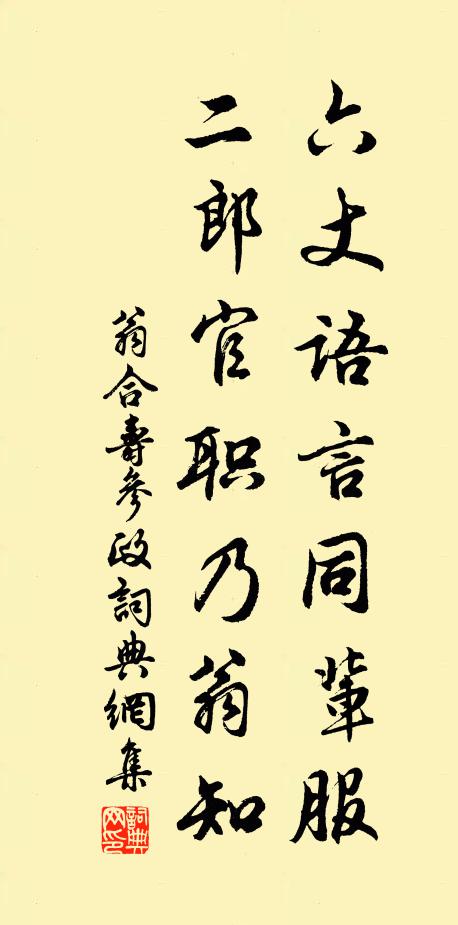 六丈语言同輩服
二郎官职乃翁知
翁合壽參政詞典網集
詞典网印